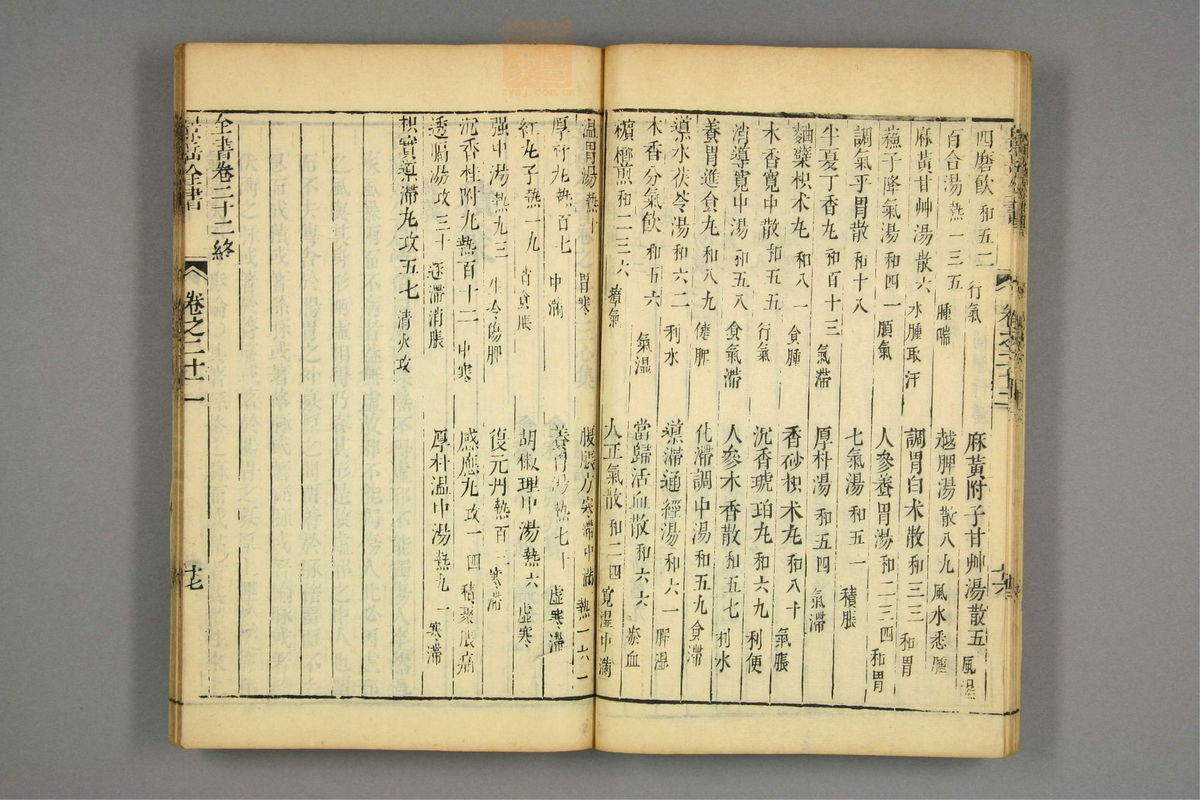 四磨飲 和五二 行氣 麻黃附子甘艸湯 散五 風濕
百合湯 熱一三五 腫喘 越脾湯 散八九 風水悉腫
麻黃甘艸湯 散六 水腫取汗 調胃白术散 和三三 和胃
蘓子降氣湯 和四一 順氣 人參養胃湯 和二三四 和胃
調氣平胃散 和十八 七氣湯 和五一 積脹
半夏丁香丸 和百十三 氣滯 厚朴湯 和五四 氣滯
麯糵枳术丸 和八一 食腫 香砂枳术丸 和八十 氣脹
木香寬中散 和五五 行氣 沉香琥珀丸 和六九 利便
消導寬中湯 和五八 食氣滯 人參木香散 和五七 利水
養胃進食丸 和八九 健脾 化滯調中湯 和五九 食滯
導水茯苓湯 和六二 利水 導滯通經湯 和六一 脾濕
木香分氣飲 和五六 氣濕 當歸活血散 和六六 瘀血
檳榔煎 和二三六 瘴氣 人正氣散 和二四 寬濕中滿
温胃湯 熱十 胃寒 腹脹方 寒滯中滿 熱一六一
厚朴丸 熱百七 中滿 養胃湯 熱七十 虛寒滯
紅丸子 熱一九 胃食脹 胡椒理中湯 熱六 虛寒
强中湯 熱九三 生冷傷脾 復元丹 熱百二 寒滯
沉香桂附丸 熱百十二 中寒 感應丸 攻一四 積聚脹痛
透膈湯 攻三十 逐滯消脹 厚朴温中湯 熱九一 寒滯
枳實導滯丸 攻五七 清火攻
全書卷二十二終
景岳全書 卷之二十二